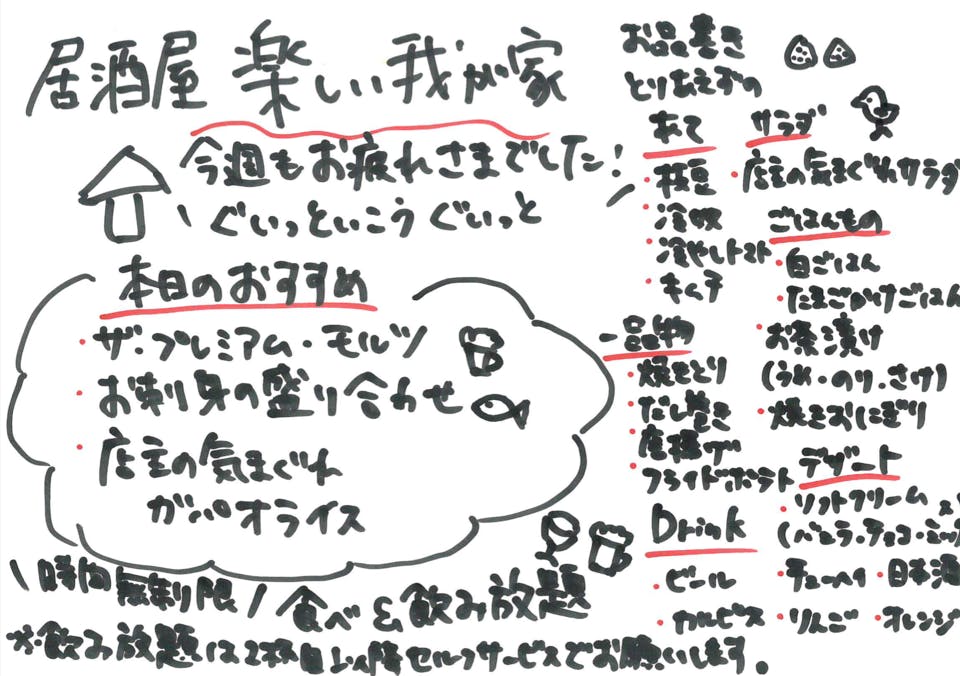 居酒屋 楽しい我が家
今週もお疲れさまでした!
ぐいっといこうぐいっと
本日のおすすめ
・ザ・プレミアム・モルツ
・お刺身の盛り合わせ
・店主の気まぐれ
ガパオライス
\時間無制限/食べ&飲み放題
※飲み放題は2杯目以降セルフサービスでお願いします。
お品書き
とりあえずの
あて
・枝豆
・冷奴
・冷やしトマト
・キムチ
一品物
・焼きとり
・だし巻き
・唐揚げ
・フライドポテト
サラダ
・店主の気まぐれサラダ
ごはんもの
・白ごはん
・たまごかけごはん
・お茶漬け
(うめ・のり・さけ)
・焼きおにぎり
デザート
・ソフトクリーム
(バニラ・チョコ・ミッ
Drink
・ビール ・チューハイ ・日本酒
・カルピス ・りんご ・オレンジ